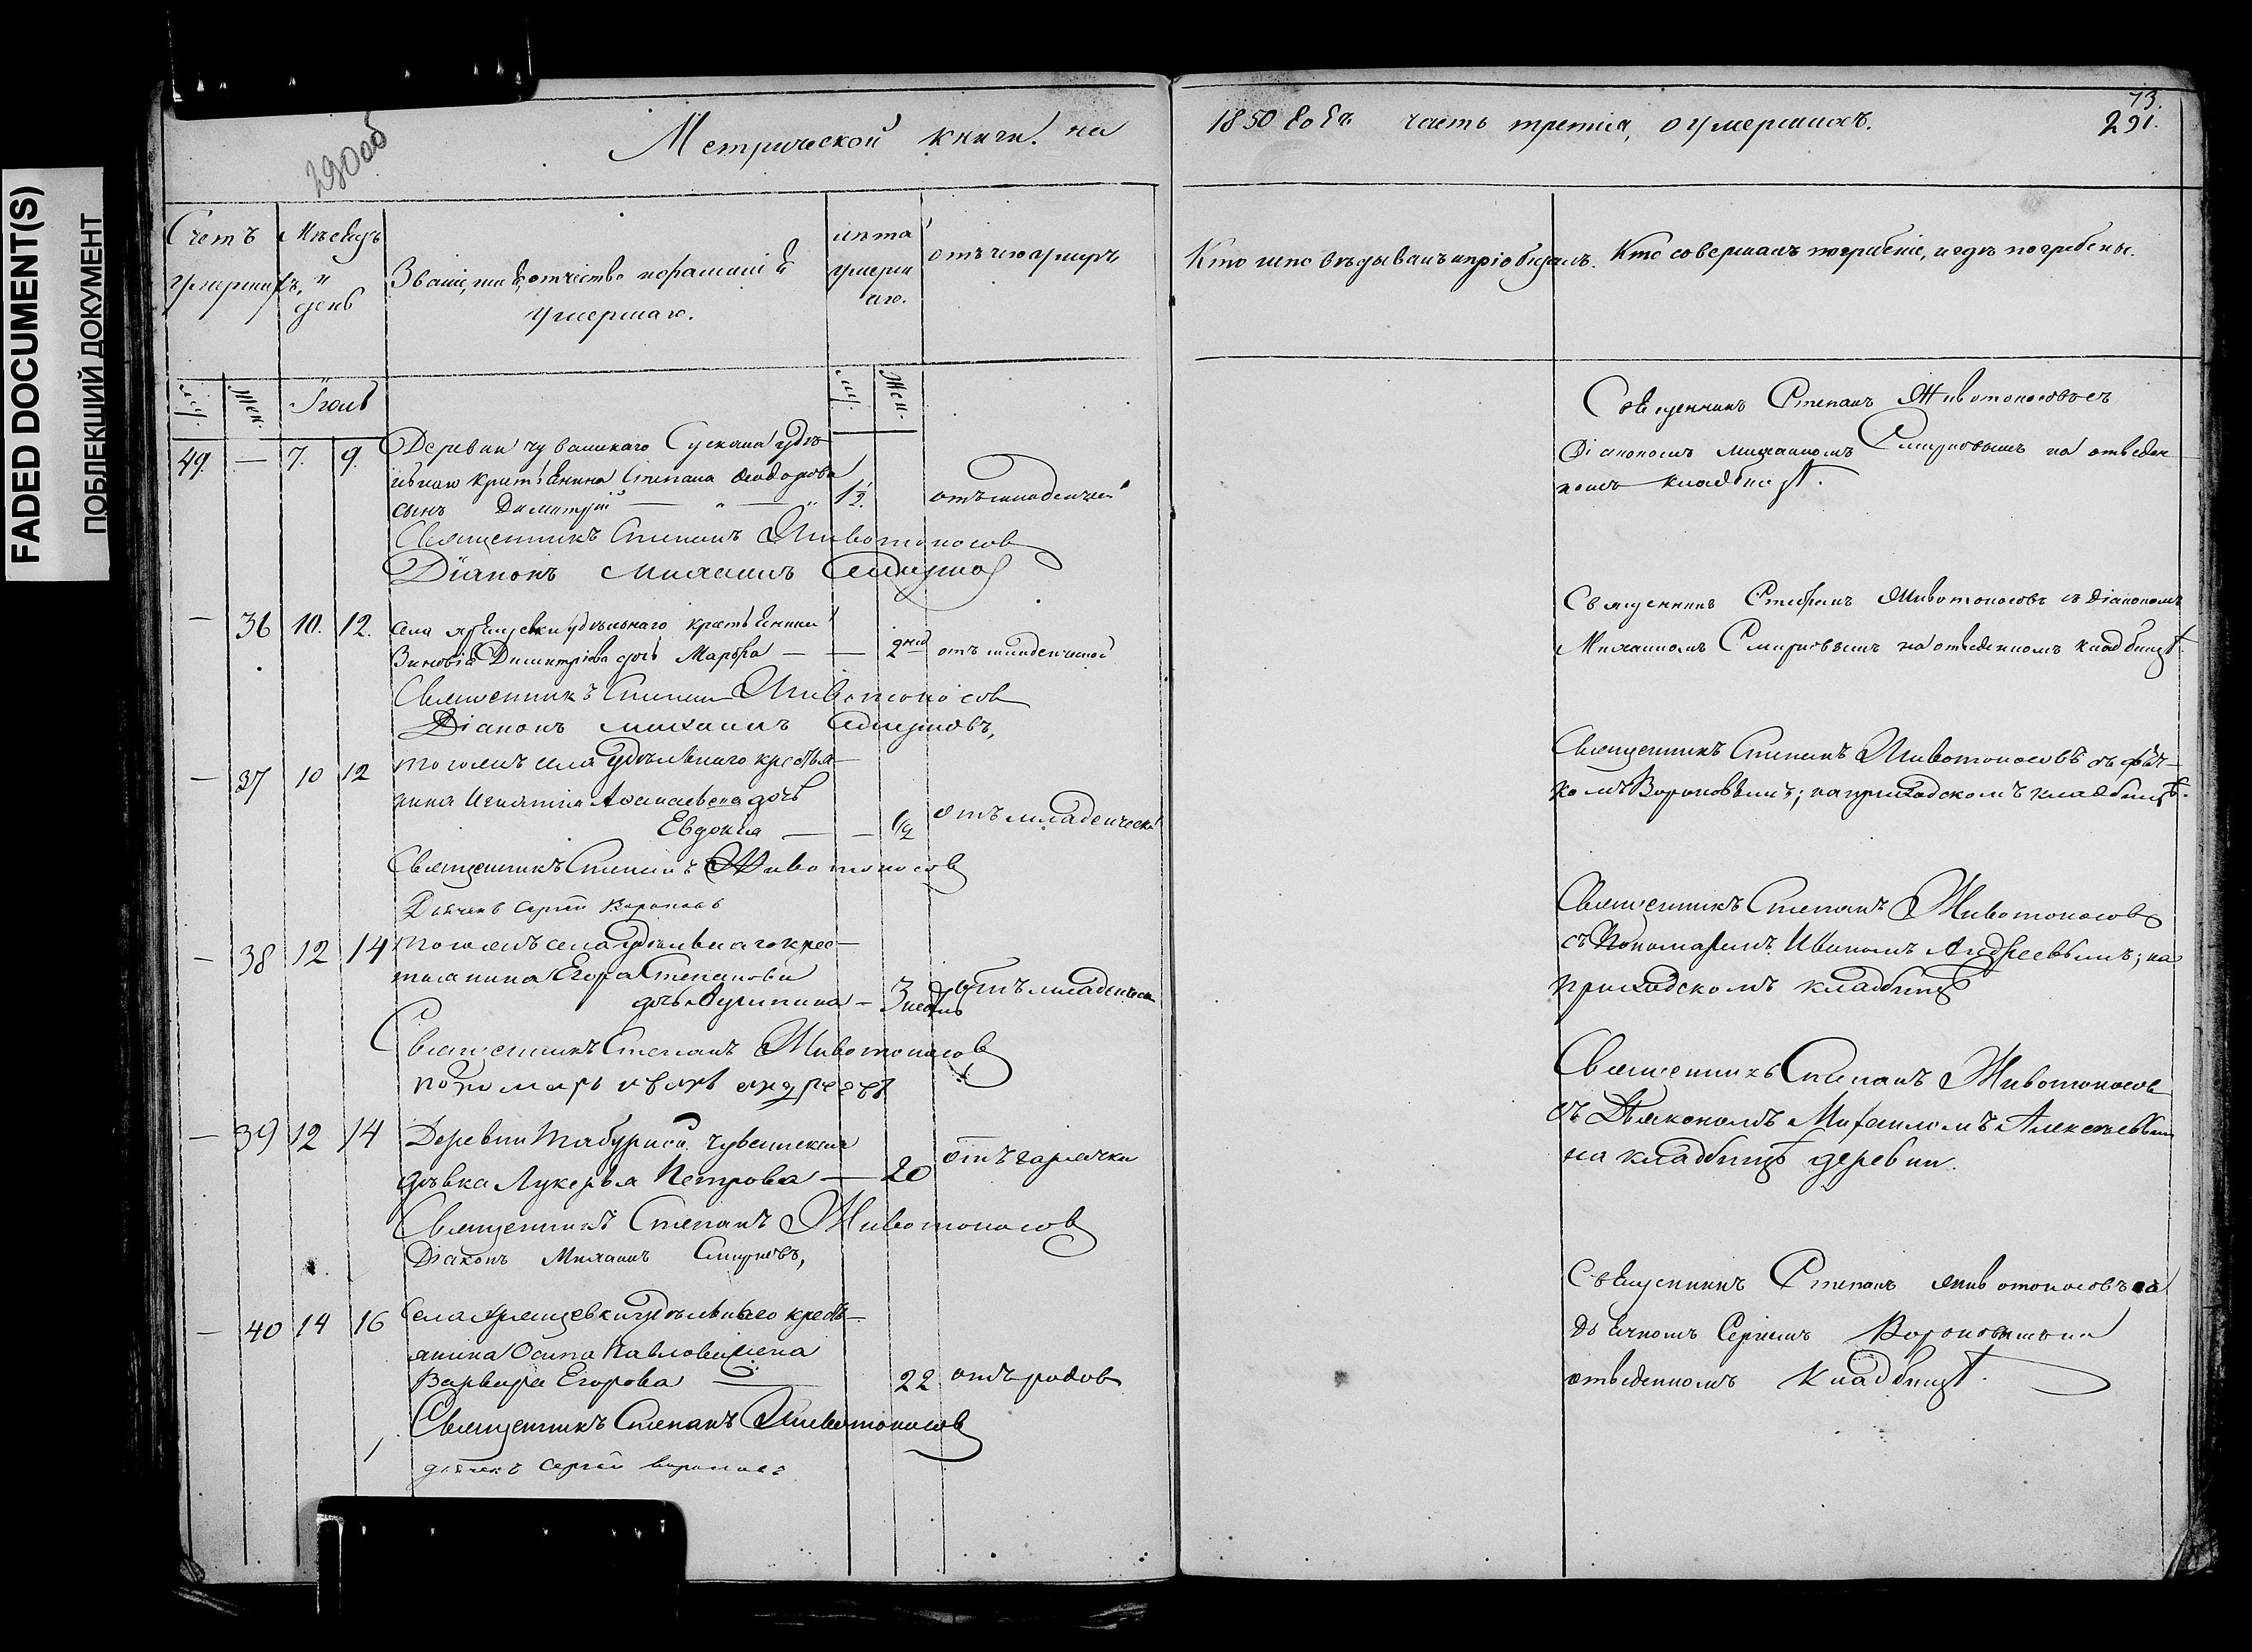 FADED DOCUMENT(S)
ПОБЛЕКШИЙ ДОКУМЕНТ
290об
Метрической книги на
1850 годъ часть третія, о умершихъ.
73.
291.
Счетъ умершихъ.
Мѣсяцъ и день
Званіе, имя, отчество и фамилія
умершаго.
лѣта умершаго.
отъ чего умеръ
Кто исповѣдывалъ и пріобщалъ.
Кто совершалъ погребеніе, и гдѣ погребены.
муж. жен. Іюль
муж. жен.
49. — 7. 9. Деревни чувашскаго Сускана удѣ-
льнаго крестьянина Степана Ѳеодорова
сынъ Димитрій — „ — „ 1/2. отъ младенческой
Священникъ Степанъ Животоносовъ
Діаконъ Михаилъ Смирнов
Священникъ Степанъ Животоносовъ съ
Діакономъ Михаиломъ Смирновымъ на отведен-
номъ кладбищѣ.
— 36 10. 12. села Хрящевки удѣльнаго крестьянина
Зиновія Димитріева дочь Марѳа — — 2 дней отъ младенческой
Священникъ Степанъ Животоносовъ
Діаконъ Михаилъ Смирновъ,
Священникъ Стефанъ Животоносовъ съ Діакономъ
Михаиломъ Смирновымъ на отведенномъ кладбищѣ.
— 37 10 12 тогожъ села удѣльнаго крестья-
нина Игнатія Аѳанасьева дочь
Евдокія — — 1/2 отъ младенческой
Священникъ Степанъ Животоносовъ
Дьячекъ Сергей Вороновъ
Священникъ Степанъ Животоносовъ съ дьяч-
комъ Вороновымъ; на приходскомъ кладбищѣ.
— 38 12 14 тогожъ села удѣльнаго крес-
тьянина Егора Степанова
дочь Агрипина — 3 недѣль отъ младенческой
Священникъ Степанъ Животоносовъ
пономарь иванъ андреевъ
Священникъ Степанъ Животоносовъ
съ Пономаремъ Иваномъ Андреевымъ; на
приходскомъ кладбищѣ
— 39 12 14 Деревни чувашская
дѣвка Лукерья Петрова — 20 отъ горячки
Священникъ Степанъ Животоносовъ
Діаконъ Михаилъ Смирновъ,
Священникъ Степанъ Животоносовъ
съ Дьякономъ Михаиломъ Алексѣевымъ
на кладбищѣ деревни.
— 40 14 16 Села Хрящевки удѣльнаго кресть-
янина Осипа Павлова жена
Варвара Егорова — 22 отъ родовъ
Священникъ Степанъ Животоносовъ
дьячекъ Сергей Вороновъ
Священникъ Степанъ Животоносовъ съ
Дьячкомъ Сергіемъ Вороновымъ на
отведенномъ кладбищѣ.